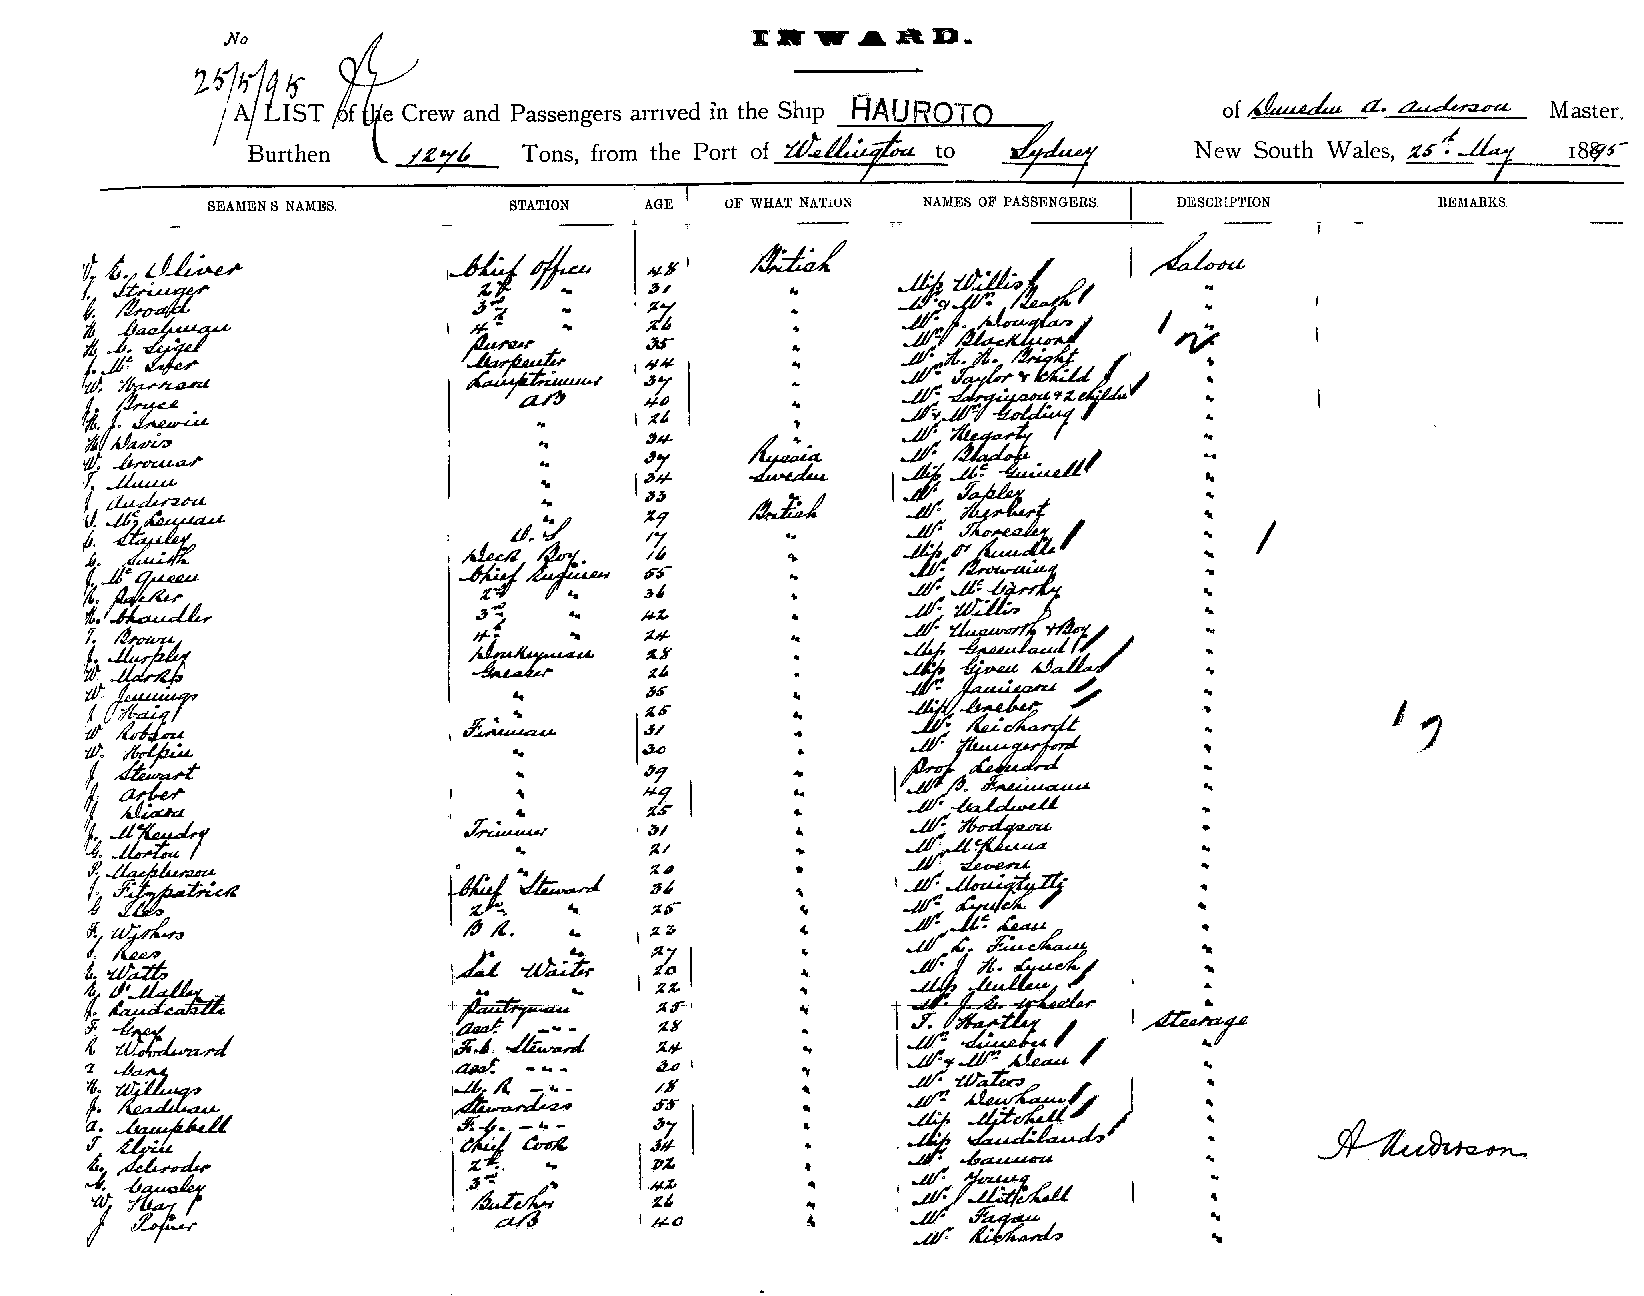 No
INWARD.
25/5/95
A LIST of the Crew and Passengers arrived in the Ship HAUROTO of Dunedin A. Anderson Master,
Burthen 1276 Tons, from the Port of Wellington to Sydney New South Wales, 25th May 1895
SEAMENS NAMES. STATION AGE OF WHAT NATION NAMES OF PASSENGERS. DESCRIPTION REMARKS.
E. Oliver Chief Officer 48 British Saloon
Stringer 2nd " 31 " Miss Willis "
Broad 3rd " 27 " Mr & Mrs Beath "
H. Cashman 4th " 26 " Mr J. Douglas "
H. C. Siegel Purser 35 " Blackwood "
J. Mc Carpenter 44 " Mr H. H. Bright "
W. Harrison Lamptrimmer 37 " Taylor & Child "
J. Bruce AB 40 " Sargisson & 2 childn "
H. J. Trewin " 26 " Mr & Mrs Golding "
H. Davis " 34 " Mr Hegarty "
W. Cromar " 37 Russia Mr Bladon "
T. Munn " 34 Sweden Miss Mc Guinell "
J. Anderson " 33 " Mr Tapley "
Mc Lennan " 29 British Mr Herbert "
C. Stanley O.S 17 " Mr Thoresby "
C. Smith Deck Boy 16 " Miss Rundle "
J. Mc Queen Chief Engineer 55 " Mr Browning "
R. Parker 2nd " 36 " Mr Mc Carthy "
H. Chandler 3rd " 42 " Mr Willis "
T. Brown 4th " 24 " Mr Unsworth & Boy "
J. Murphy Donkeyman 28 " Miss Greenland "
W. Marks Greaser 26 " Miss Given Dallas "
W. Jennings " 35 " Jamieson "
Haig " 25 " Miss Creber "
W Robson Fireman 31 " Mr Reichardt "
W. Holpin " 30 " Mr Hungerford "
J. Stewart " 39 " Prof Lenard "
J. Arber " 49 " Mr B. Freimann "
J. Dixon " 25 " Mr Caldwell "
J. McKendry Trimmer 31 " Mr Hodgson "
G. Morton " 21 " Mr McKenna "
Macpherson " 20 " Mr Severn "
Fitzpatrick Chief Steward 36 " Mr "
G Iles 2nd " 25 " Mr Lynch "
F. Withers B R. " 23 " Mr Mc Lean "
Rees " 27 " Mr L. Fincham "
E. Watts Sal Waiter 20 " Mr J H. Lynch "
E. O'Malley " " 22 " Miss Cullen "
J. Pantryman 25 " Mr J. C. Wheeler "
F. Grey Asst. -"- 28 " T. Hartley Steerage
R Woodward F.C. Steward 24 " "
Asst. -"- 30 " Mr & Mrs Dean "
H. Willings M. R -"- 18 " Mr Waters "
J. Readman Stewardess 55 " Mrs Dewhurst "
A. Campbell F.C. -"- 37 " Miss Mitchell "
T Elvin Chief Cook 34 " Miss Sandilands "
E. Schroder 2nd " 32 " Mr Cannon "
Cansley 3rd " 42 " Mr Young "
W. Hay Butcher 26 " Mr Mitchell "
J AB 40 " Mr Fagan "
Mr Richards "
A Anderson